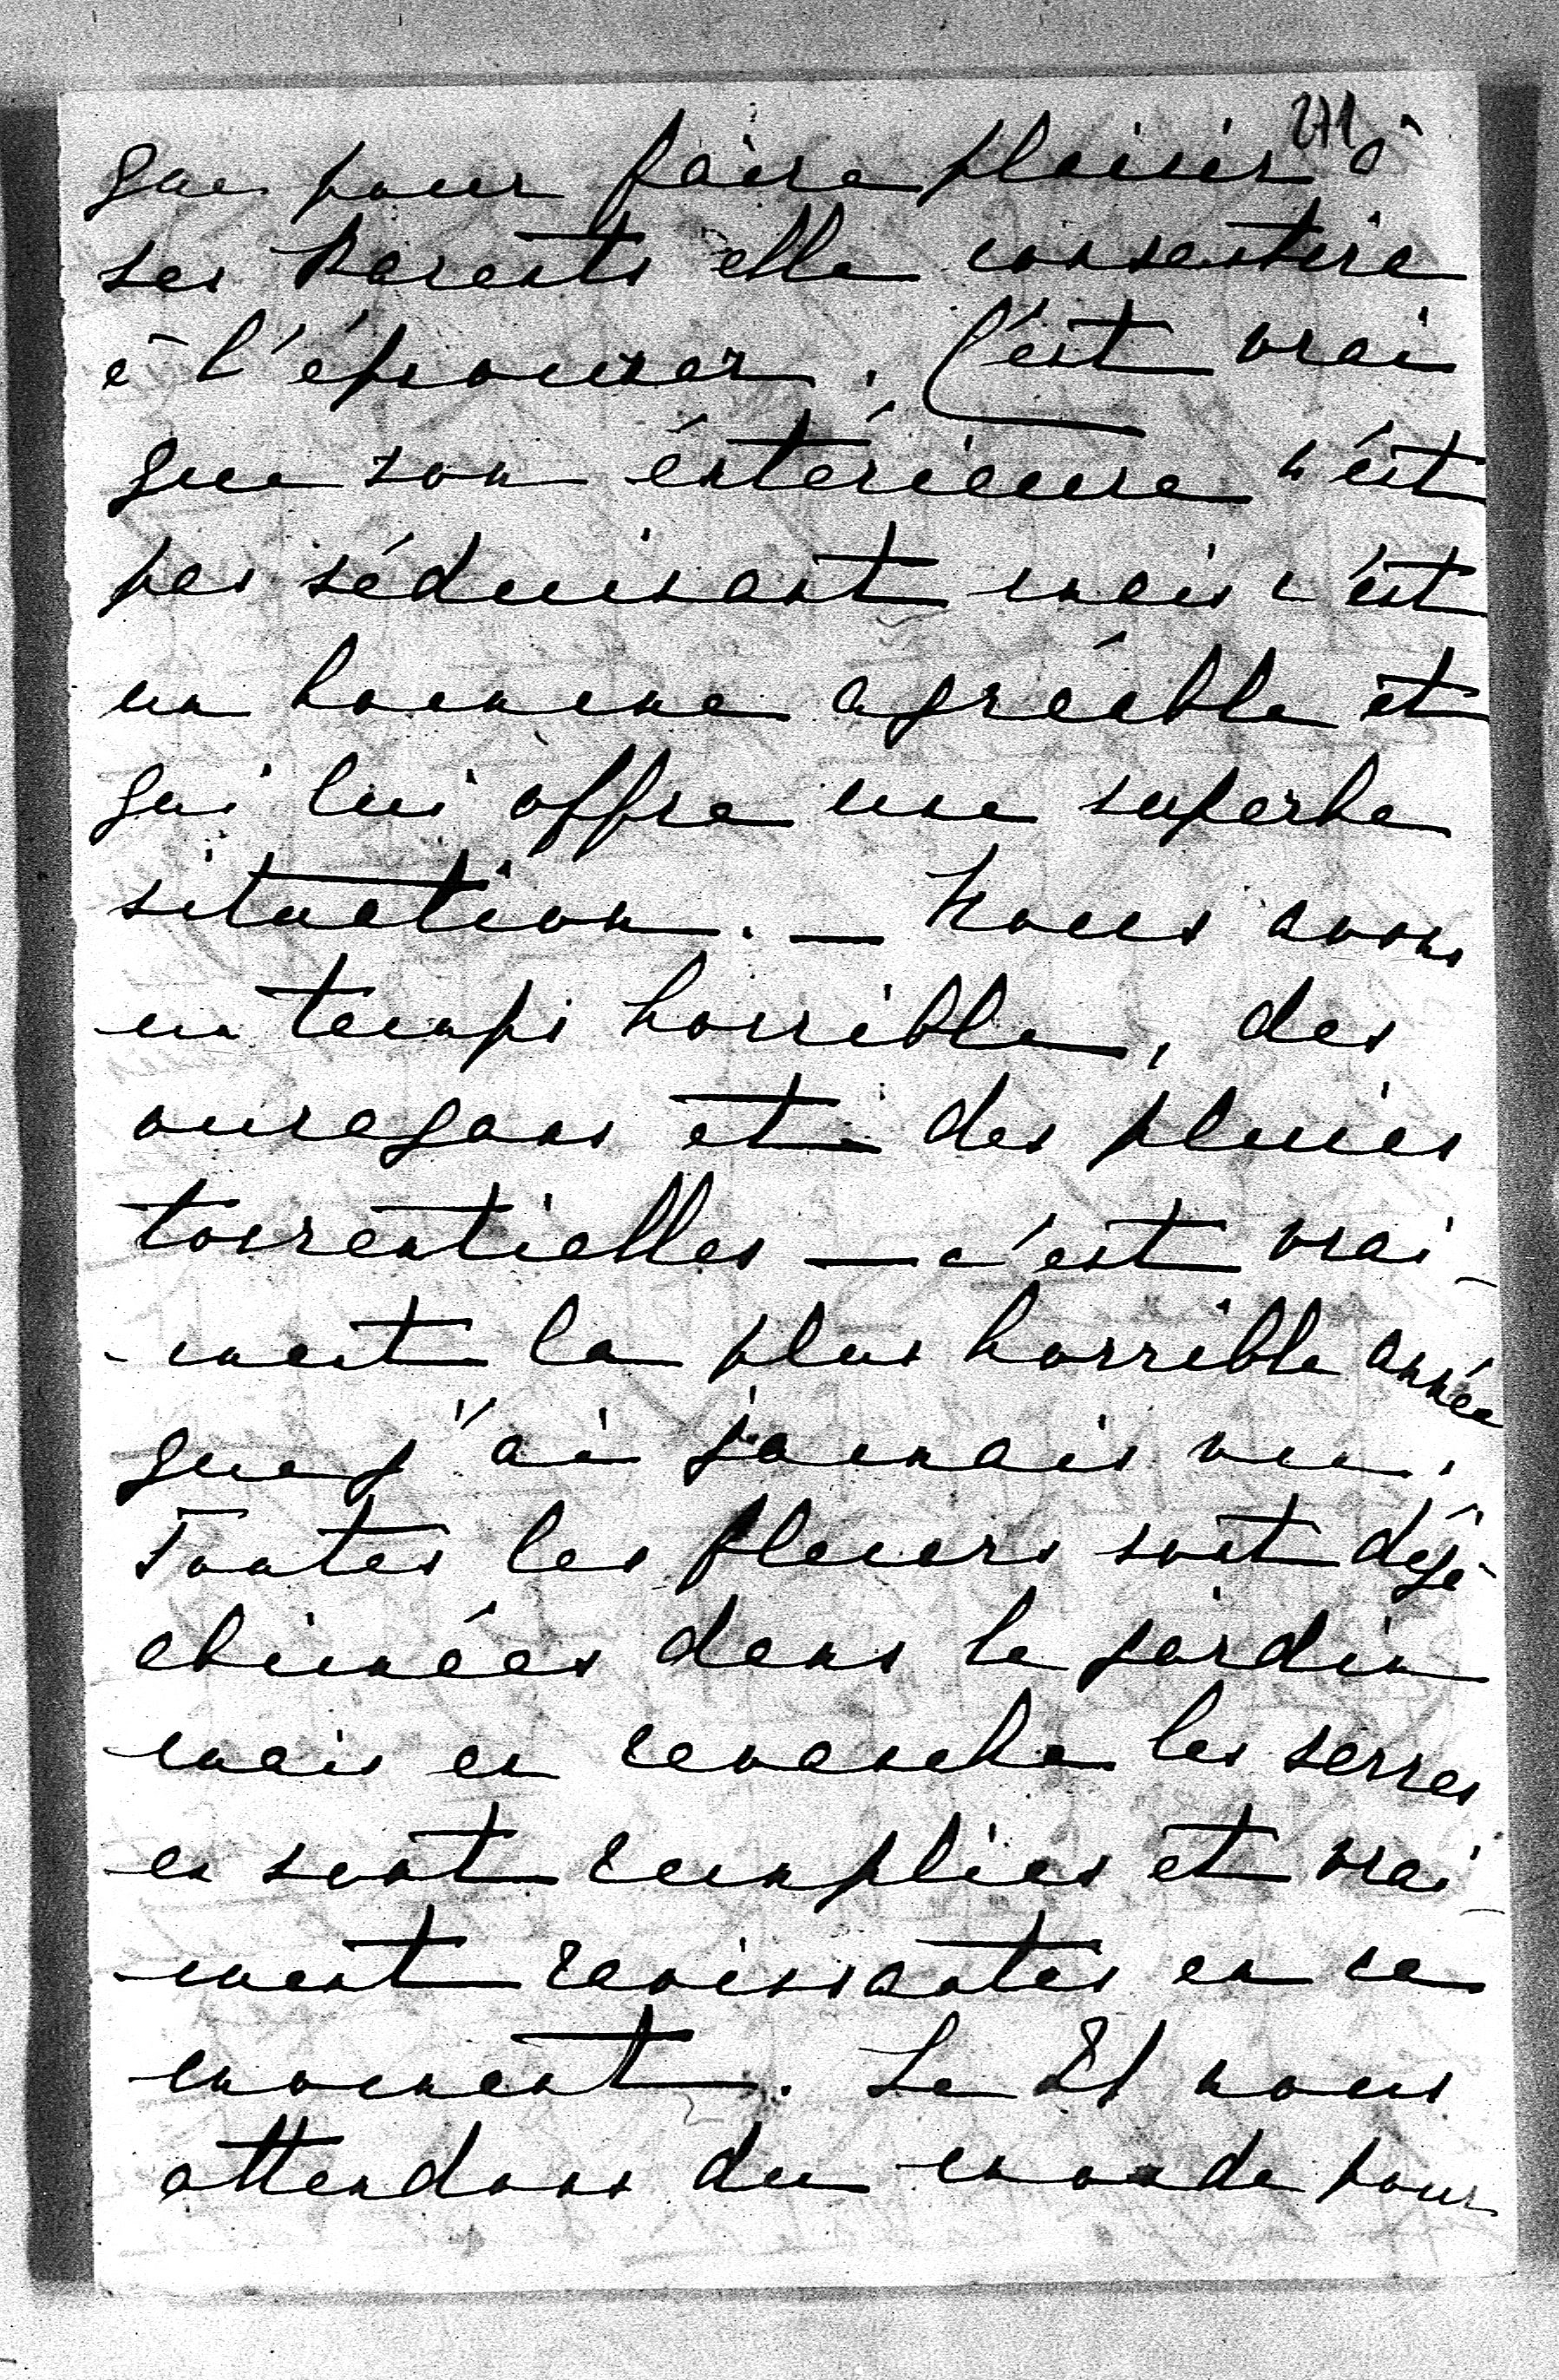 271
que pour faire plaisir à
ses Parents elle consentira
à l'épouser. C'est vrai
que son éxtérieure n'est
pas séduisant mais c'est
un homme agréable et
qui lui offre une superbe
situation. — Nous avons
un temps horrible, des
ouragans et des pluies
torrentielles — c'est vrai-
-ment la plus horrible année
que j'ai jamais vue.
Toutes les fleurs sont déjà
abimées dans le jardin
mais en revanche les serres
en sont remplies et vrai-
-ment ravissantes en ce
moment. Le 21 nous
attendons du monde pour